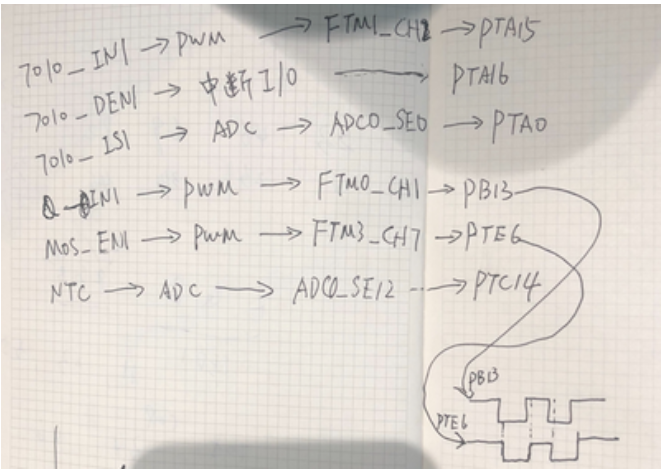 7010_IN1 → PWM → FTM1_CH1 → PTA15
7010_DEN1 → 中断I/O → PTA16
7010_IS1 → ADC → ADC0_SE0 → PTA0
IN1 → PWM → FTM0_CH1 → PB13
MOS_EN1 → PWM → FTM3_CH7 → PTE6
NTC → ADC → ADC0_SE12 → PTC14
PB13
PTE6